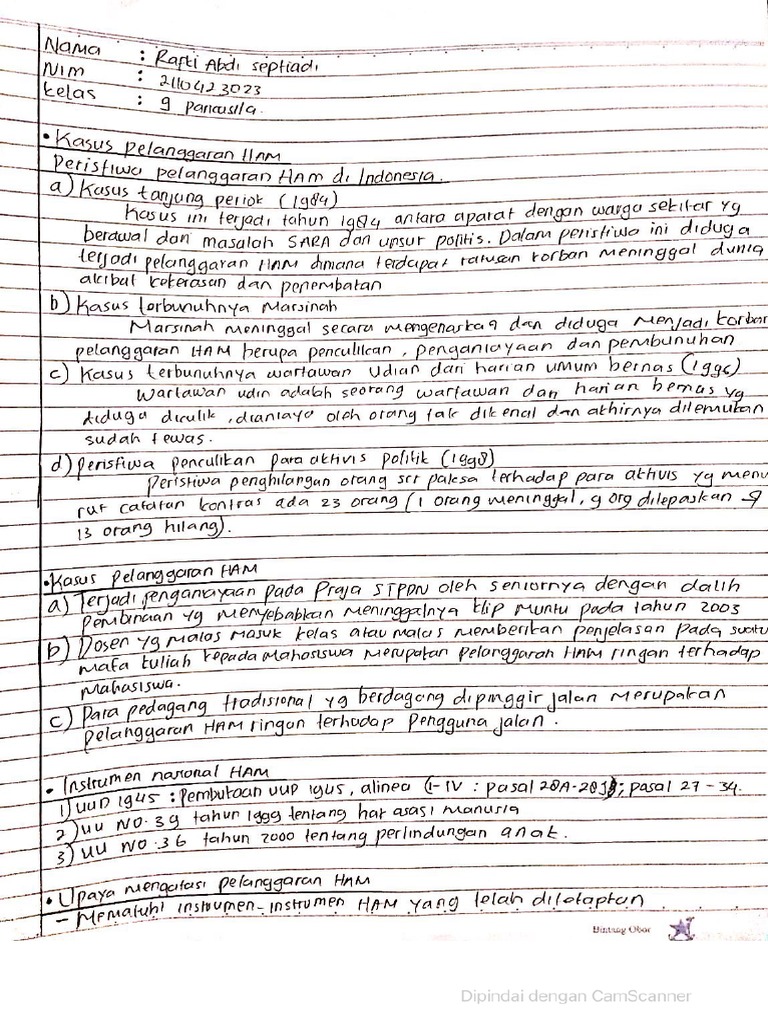 Nama : Rafti Abdi Septiadi
Nim : 2110423023
Kelas : 9 Pancasila.
• Kasus pelanggaran HAM
Peristiwa pelanggaran HAM di Indonesia.
a) Kasus tanjung periok (1984)
Kasus ini terjadi tahun 1984 antara aparat dengan warga sekitar yg
berawal dari masalah SARA dan unsur politis. Dalam peristiwa ini diduga
terjadi pelanggaran HAM dimana terdapat ratusan korban meninggal dunia
akibat kekerasan dan penembakan
b) Kasus terbunuhnya Marsinah
Marsinah meninggal secara mengenaskan dan diduga menjadi korban
pelanggaran HAM berupa penculikan, penganiayaan dan pembunuhan
c) Kasus terbunuhnya wartawan Udian dari harian umum bernas (1996)
Wartawan udin adalah seorang wartawan dari harian bernas yg
diduga diculik, dianiaya oleh orang tak dikenal dan akhirnya ditemukan
sudah tewas.
d) peristiwa penculikan para aktivis politik (1998)
Peristiwa penghilangan orang scr paksa terhadap para aktivis yg menu
rut catatan kontras ada 23 orang (1 orang meninggal, 9 org dilepaskan &
13 orang hilang).
• Kasus pelanggaran HAM
a) Terjadi penganiayaan pada Praja STPDN oleh seniornya dengan dalih
pembinaan yg menyebabkan meninggalnya klip Muntu pada tahun 2003
b) Dosen yg malas masuk kelas atau malas memberikan penjelasan pada suatu
mata kuliah kepada Mahasiswa merupakan pelanggaran HAM ringan terhadap
Mahasiswa.
c) Para pedagang tradisional yg berdagang dipinggir jalan merupakan
pelanggaran HAM ringan terhadap pengguna jalan.
• Instrumen nasional HAM
1) UUD 1945 : pembukaan UUD 1945, alinea (I-IV : pasal 28A-28J); pasal 27 - 34.
2) UU NO. 39 tahun 1999 tentang hak asasi Manusia
3) UU NO. 36 tahun 2000 tentang perlindungan anak.
• Upaya mengatasi pelanggaran HAM
- Mematuhi instrumen-instrumen HAM yang telah ditetapkan
Bintang Obor
Dipindai dengan CamScanner